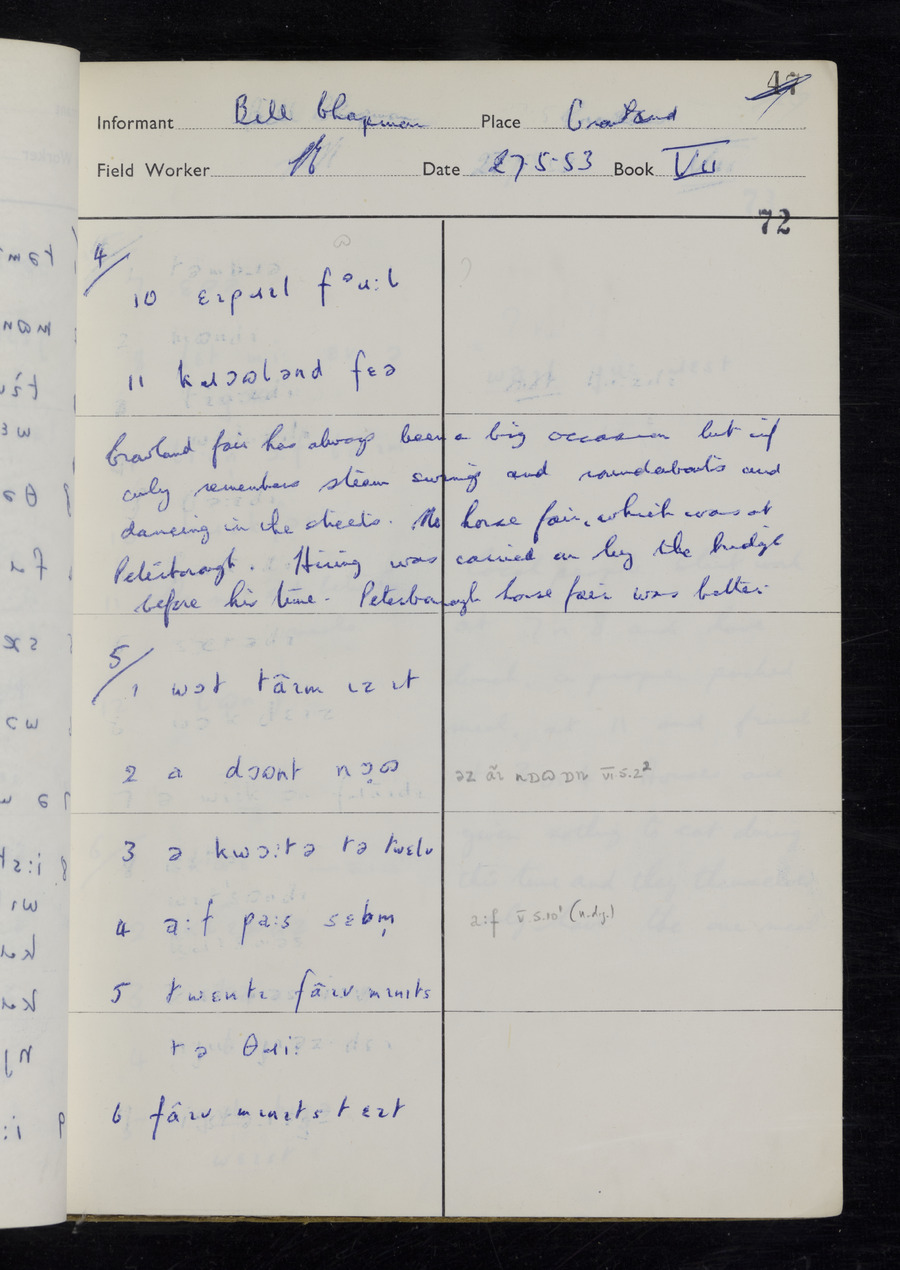 47
Informant Bill Chapman Place Crowland
Field Worker Date 27.5.53 Book VII
72
4/
10 ɛɪpɹɪl fᵊʉ:l
11 kɹɔʊlənd fɛə
Crowland fair has always been a big occasion but inf
only remembers steam swings and roundabouts and
dancing in the streets. The horse fair, which was at
Peterborough. Hiring was carried on by the bridge
before his time. Peterborough horse fair was better.
5/
1 wɔt tâɪm ɪz ɪt
2 a dɔʊnt nɔ̣ʊ əz âɪ nɒʊ ɒn VI 5.2²
3 ə kwɔ:tə tə twelv
4 a:f pa:s sɛbm̩ a:f V 5.10¹ (n.dy.)
5 twɛntɪ fâɪv mɪnɪts
tə θɹi:
6 fâɪv mɪnɪts t ɛɪt